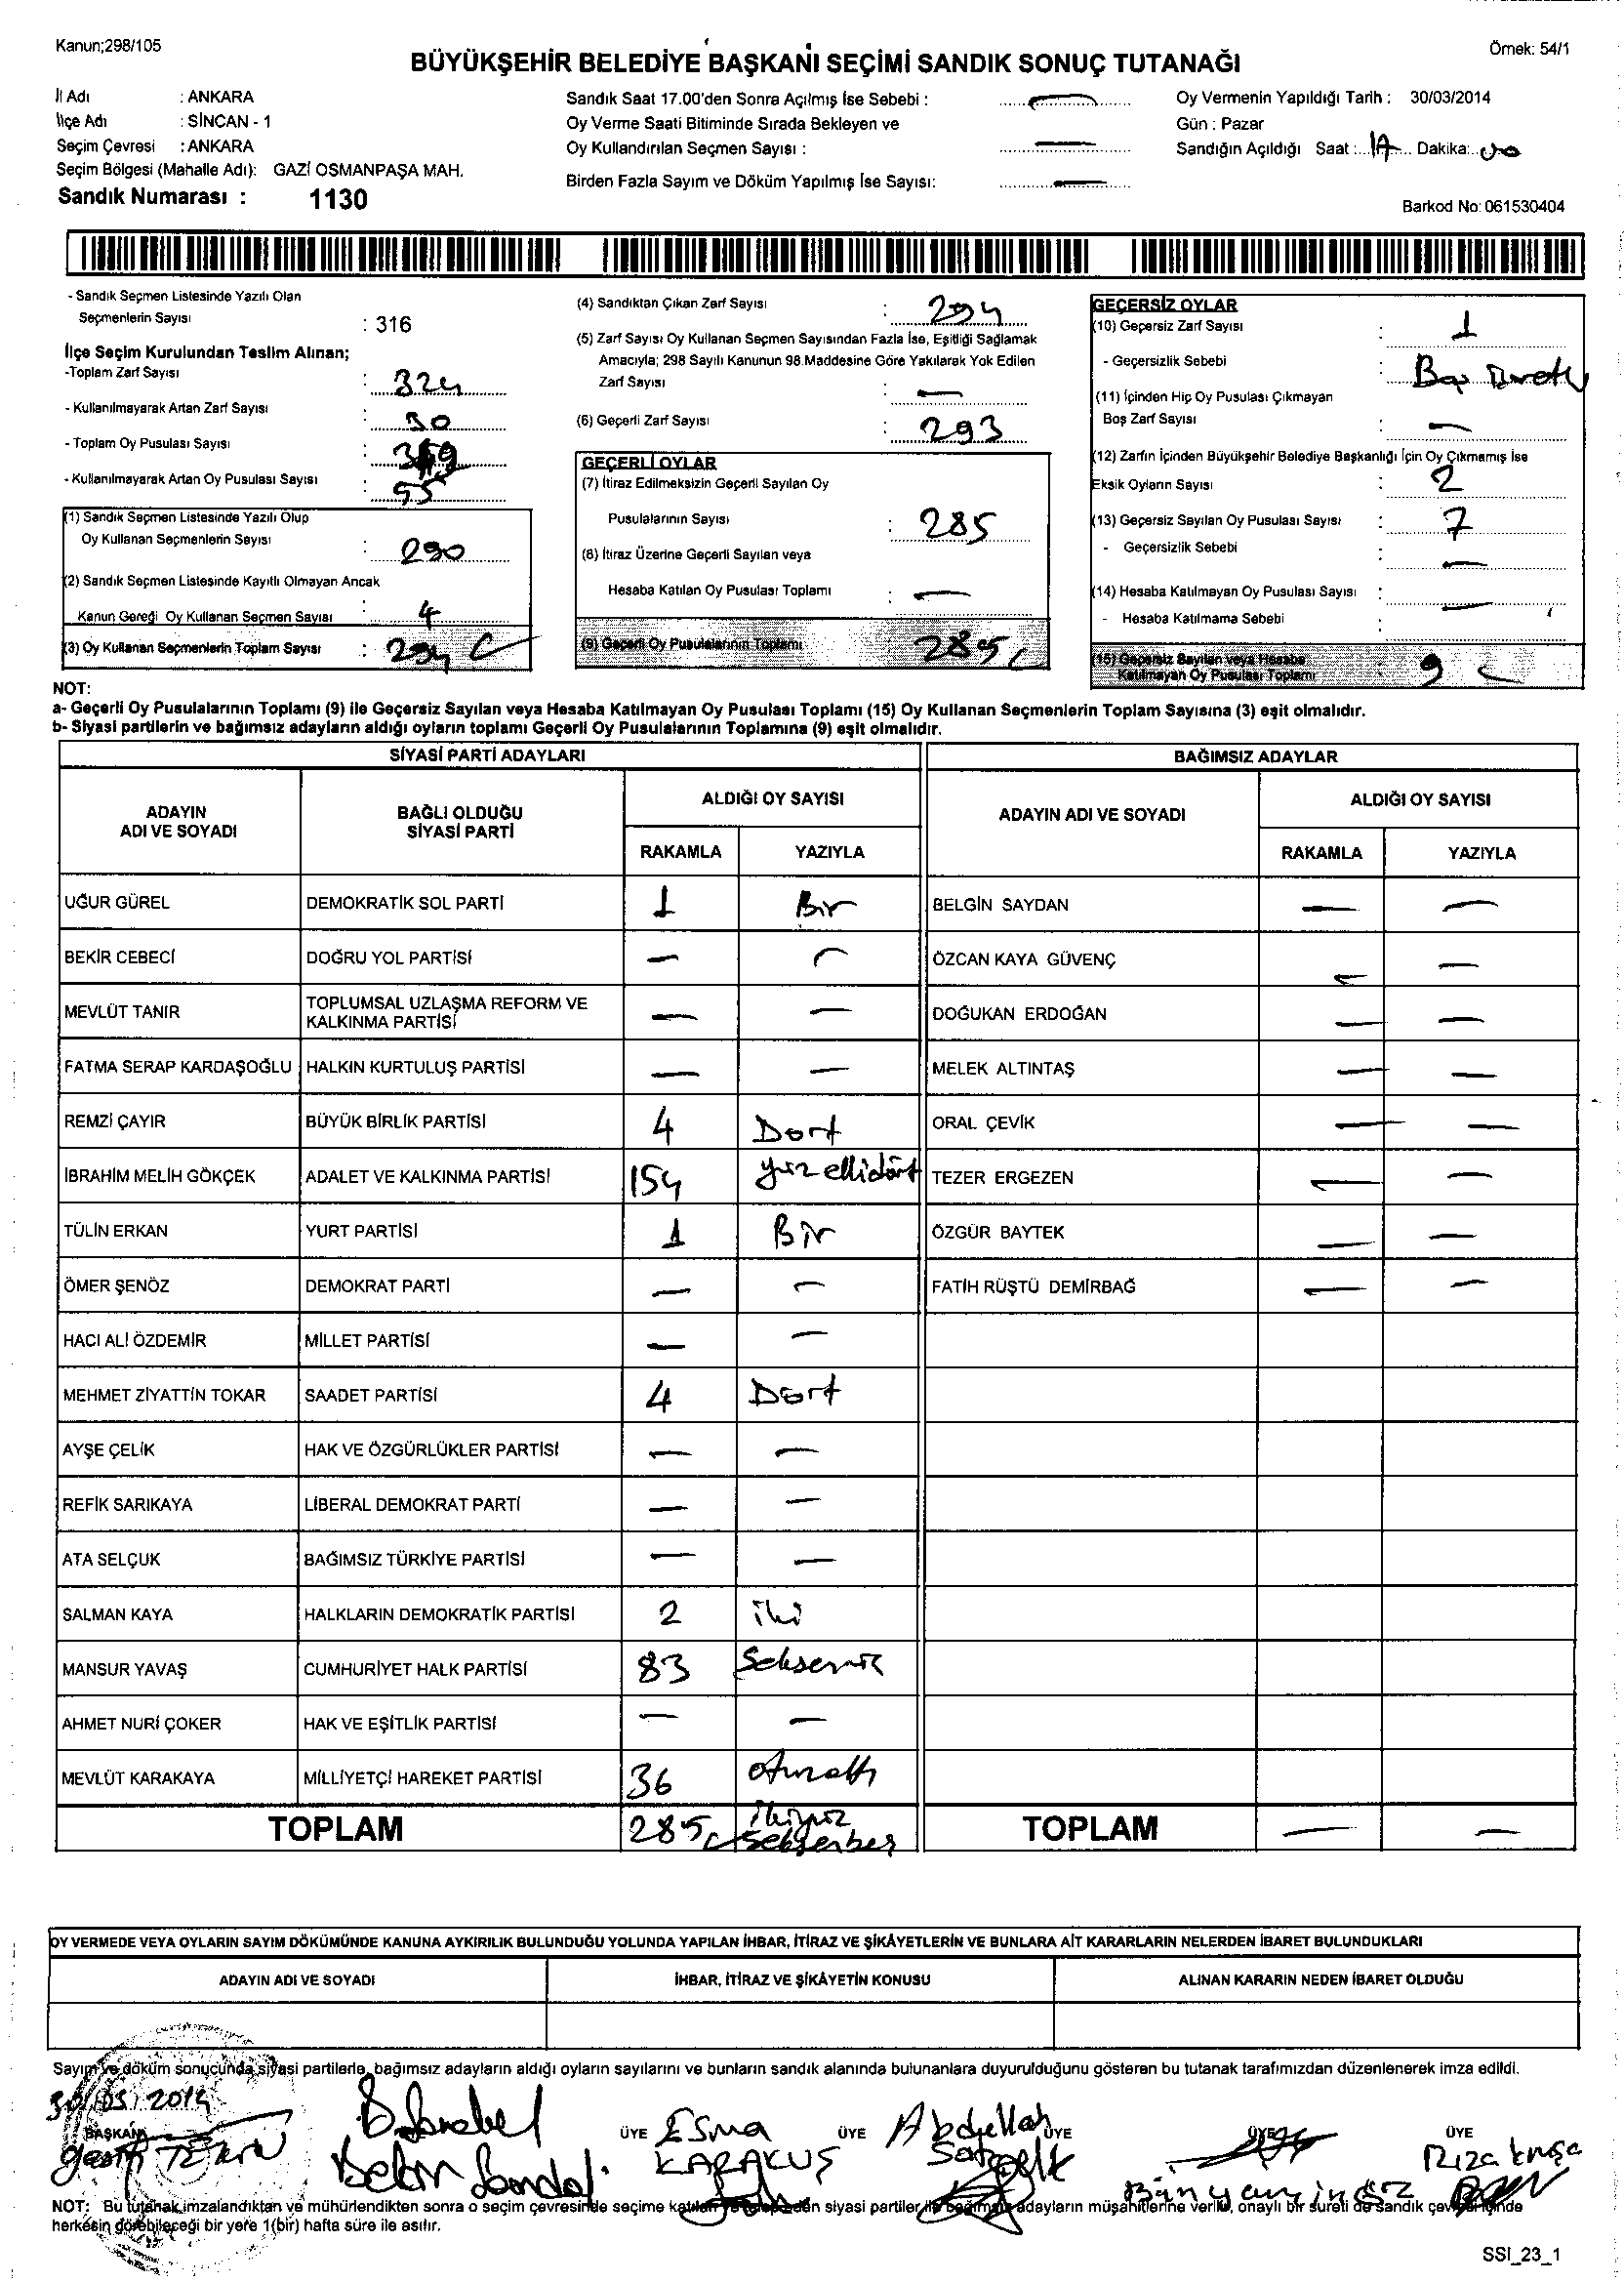 Kanun;298/105
Örnek: 54/1
BÜYÜKŞEHİR BELEDİYE BAŞKANI SEÇİMİ SANDIK SONUÇ TUTANAĞI
İl Adı : ANKARA
İlçe Adı : SİNCAN - 1
Seçim Çevresi : ANKARA
Seçim Bölgesi (Mahalle Adı): GAZİ OSMANPAŞA MAH.
Sandık Numarası : 1130
Sandık Saat 17.00'den Sonra Açılmış İse Sebebi : —
Oy Verme Saati Bitiminde Sırada Bekleyen ve
Oy Kullandırılan Seçmen Sayısı : —
Birden Fazla Sayım ve Döküm Yapılmış İse Sayısı: —
Oy Vermenin Yapıldığı Tarih : 30/03/2014
Gün : Pazar
Sandığın Açıldığı Saat : 17 Dakika:
Barkod No: 061530404
- Sandık Seçmen Listesinde Yazılı Olan
Seçmenlerin Sayısı : 316
İlçe Seçim Kurulundan Teslim Alınan;
-Toplam Zarf Sayısı : 324
- Kullanılmayarak Artan Zarf Sayısı : 30
- Toplam Oy Pusulası Sayısı :
- Kullanılmayarak Artan Oy Pusulası Sayısı : 55
(1) Sandık Seçmen Listesinde Yazılı Olup
Oy Kullanan Seçmenlerin Sayısı : 290
(2) Sandık Seçmen Listesinde Kayıtlı Olmayan Ancak
Kanun Gereği Oy Kullanan Seçmen Sayısı : 4
(3) Oy Kullanan Seçmenlerin Toplam Sayısı : 294
(4) Sandıktan Çıkan Zarf Sayısı : 294
(5) Zarf Sayısı Oy Kullanan Seçmen Sayısından Fazla İse, Eşitliği Sağlamak
Amacıyla; 298 Sayılı Kanunun 98.Maddesine Göre Yakılarak Yok Edilen
Zarf Sayısı : —
(6) Geçerli Zarf Sayısı : 293
GEÇERLİ OYLAR
(7) İtiraz Edilmeksizin Geçerli Sayılan Oy
Pusulalarının Sayısı : 285
(8) İtiraz Üzerine Geçerli Sayılan veya
Hesaba Katılan Oy Pusulası Toplamı : —
(9) Geçerli Oy Pusulalarının Toplamı 285
GEÇERSİZ OYLAR
(10) Geçersiz Zarf Sayısı : 1
- Geçersizlik Sebebi :
(11) İçinden Hiç Oy Pusulası Çıkmayan
Boş Zarf Sayısı : —
(12) Zarfın İçinden Büyükşehir Belediye Başkanlığı İçin Oy Çıkmamış İse
Eksik Oyların Sayısı : 2
(13) Geçersiz Sayılan Oy Pusulası Sayısı : 7
- Geçersizlik Sebebi : —
(14) Hesaba Katılmayan Oy Pusulası Sayısı : —
- Hesaba Katılmama Sebebi :
(15) Geçersiz Sayılan veya Hesaba
Katılmayan Oy Pusulası Toplamı 9
NOT:
a- Geçerli Oy Pusulalarının Toplamı (9) ile Geçersiz Sayılan veya Hesaba Katılmayan Oy Pusulası Toplamı (15) Oy Kullanan Seçmenlerin Toplam Sayısına (3) eşit olmalıdır.
b- Siyasi partilerin ve bağımsız adayların aldığı oyların toplamı Geçerli Oy Pusulalarının Toplamına (9) eşit olmalıdır.
SİYASİ PARTİ ADAYLARI BAĞIMSIZ ADAYLAR
ADAYIN ADI VE SOYADI BAĞLI OLDUĞU SİYASİ PARTİ ALDIĞI OY SAYISI ADAYIN ADI VE SOYADI ALDIĞI OY SAYISI
RAKAMLA YAZIYLA RAKAMLA YAZIYLA
UĞUR GÜREL DEMOKRATİK SOL PARTİ 1 Bir BELGİN SAYDAN — —
BEKİR CEBECİ DOĞRU YOL PARTİSİ — — ÖZCAN KAYA GÜVENÇ — —
MEVLÜT TANIR TOPLUMSAL UZLAŞMA REFORM VE KALKINMA PARTİSİ — — DOĞUKAN ERDOĞAN — —
FATMA SERAP KARDAŞOĞLU HALKIN KURTULUŞ PARTİSİ — — MELEK ALTINTAŞ — —
REMZİ ÇAYIR BÜYÜK BİRLİK PARTİSİ 4 Dort ORAL ÇEVİK — —
İBRAHİM MELİH GÖKÇEK ADALET VE KALKINMA PARTİSİ 154 yüz ellidört TEZER ERGEZEN — —
TÜLİN ERKAN YURT PARTİSİ 1 Bir ÖZGÜR BAYTEK — —
ÖMER ŞENÖZ DEMOKRAT PARTİ — — FATİH RÜŞTÜ DEMİRBAĞ — —
HACI ALİ ÖZDEMİR MİLLET PARTİSİ — —
MEHMET ZİYATTİN TOKAR SAADET PARTİSİ 4 Dört
AYŞE ÇELİK HAK VE ÖZGÜRLÜKLER PARTİSİ — —
REFİK SARIKAYA LİBERAL DEMOKRAT PARTİ — —
ATA SELÇUK BAĞIMSIZ TÜRKİYE PARTİSİ — —
SALMAN KAYA HALKLARIN DEMOKRATİK PARTİSİ 2 iki
MANSUR YAVAŞ CUMHURİYET HALK PARTİSİ 83
AHMET NURİ ÇOKER HAK VE EŞİTLİK PARTİSİ — —
MEVLÜT KARAKAYA MİLLİYETÇİ HAREKET PARTİSİ 36
TOPLAM 285 ikiyüz seksenbeş TOPLAM — —
OY VERMEDE VEYA OYLARIN SAYIM DÖKÜMÜNDE KANUNA AYKIRILIK BULUNDUĞU YOLUNDA YAPILAN İHBAR, İTİRAZ VE ŞİKÂYETLERİN VE BUNLARA AİT KARARLARIN NELERDEN İBARET BULUNDUKLARI
ADAYIN ADI VE SOYADI İHBAR, İTİRAZ VE ŞİKÂYETİN KONUSU ALINAN KARARIN NEDEN İBARET OLDUĞU
Sayım ve döküm sonucunda siyasi partilerle, bağımsız adayların aldığı oyların sayılarını ve bunların sandık alanında bulunanlara duyurulduğunu gösteren bu tutanak tarafımızdan düzenlenerek imza edildi.
BAŞKAN ÜYE Esma KARAKUŞ ÜYE Abdullah ÜYE ÜYE ÜYE Rıza
NOT: Bu tutanak imzalandıktan ve mühürlendikten sonra o seçim çevresinde seçime katılan siyasi partiler ile bağımsız adayların müşahitlerine verilir, onaylı bir sureti de sandık çevresi içinde
herkesin görebileceği bir yere 1(bir) hafta süre ile asılır.
SSI_23_1